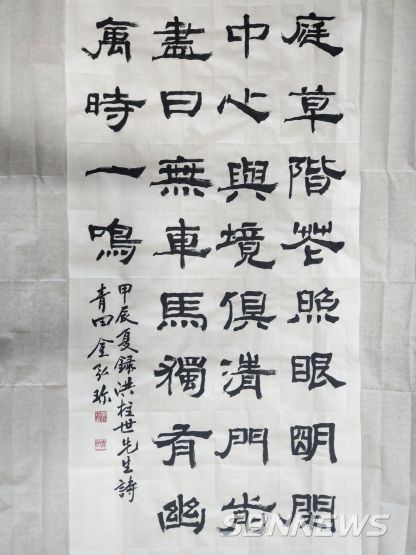 庭草階花照眼明閒
中心與境俱清門前
盡日無車馬獨有幽
禽時一鳴
甲辰夏録洪柱世先生詩
青田金弘珎
SBNNEWS